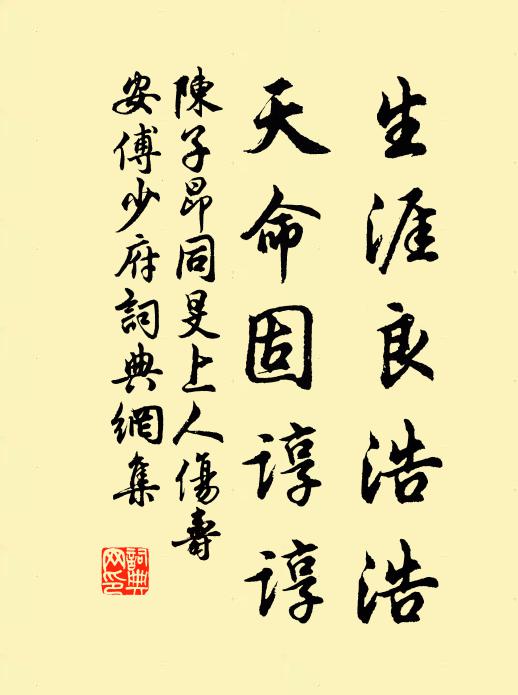 生涯良浩浩
天命固諄諄
陳子昂同旻上人傷壽
安傅少府詞典網集
詞典网印